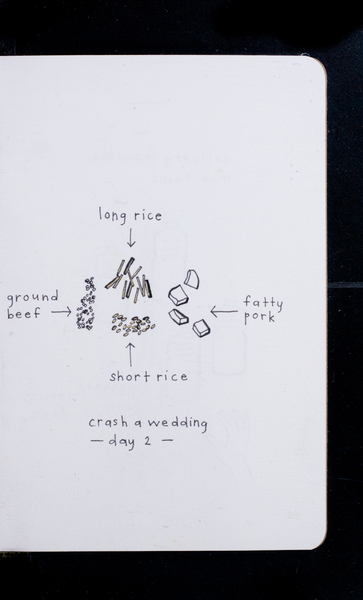 long rice
ground
beef
fatty
pork
short rice
crash a wedding
— day 2 —